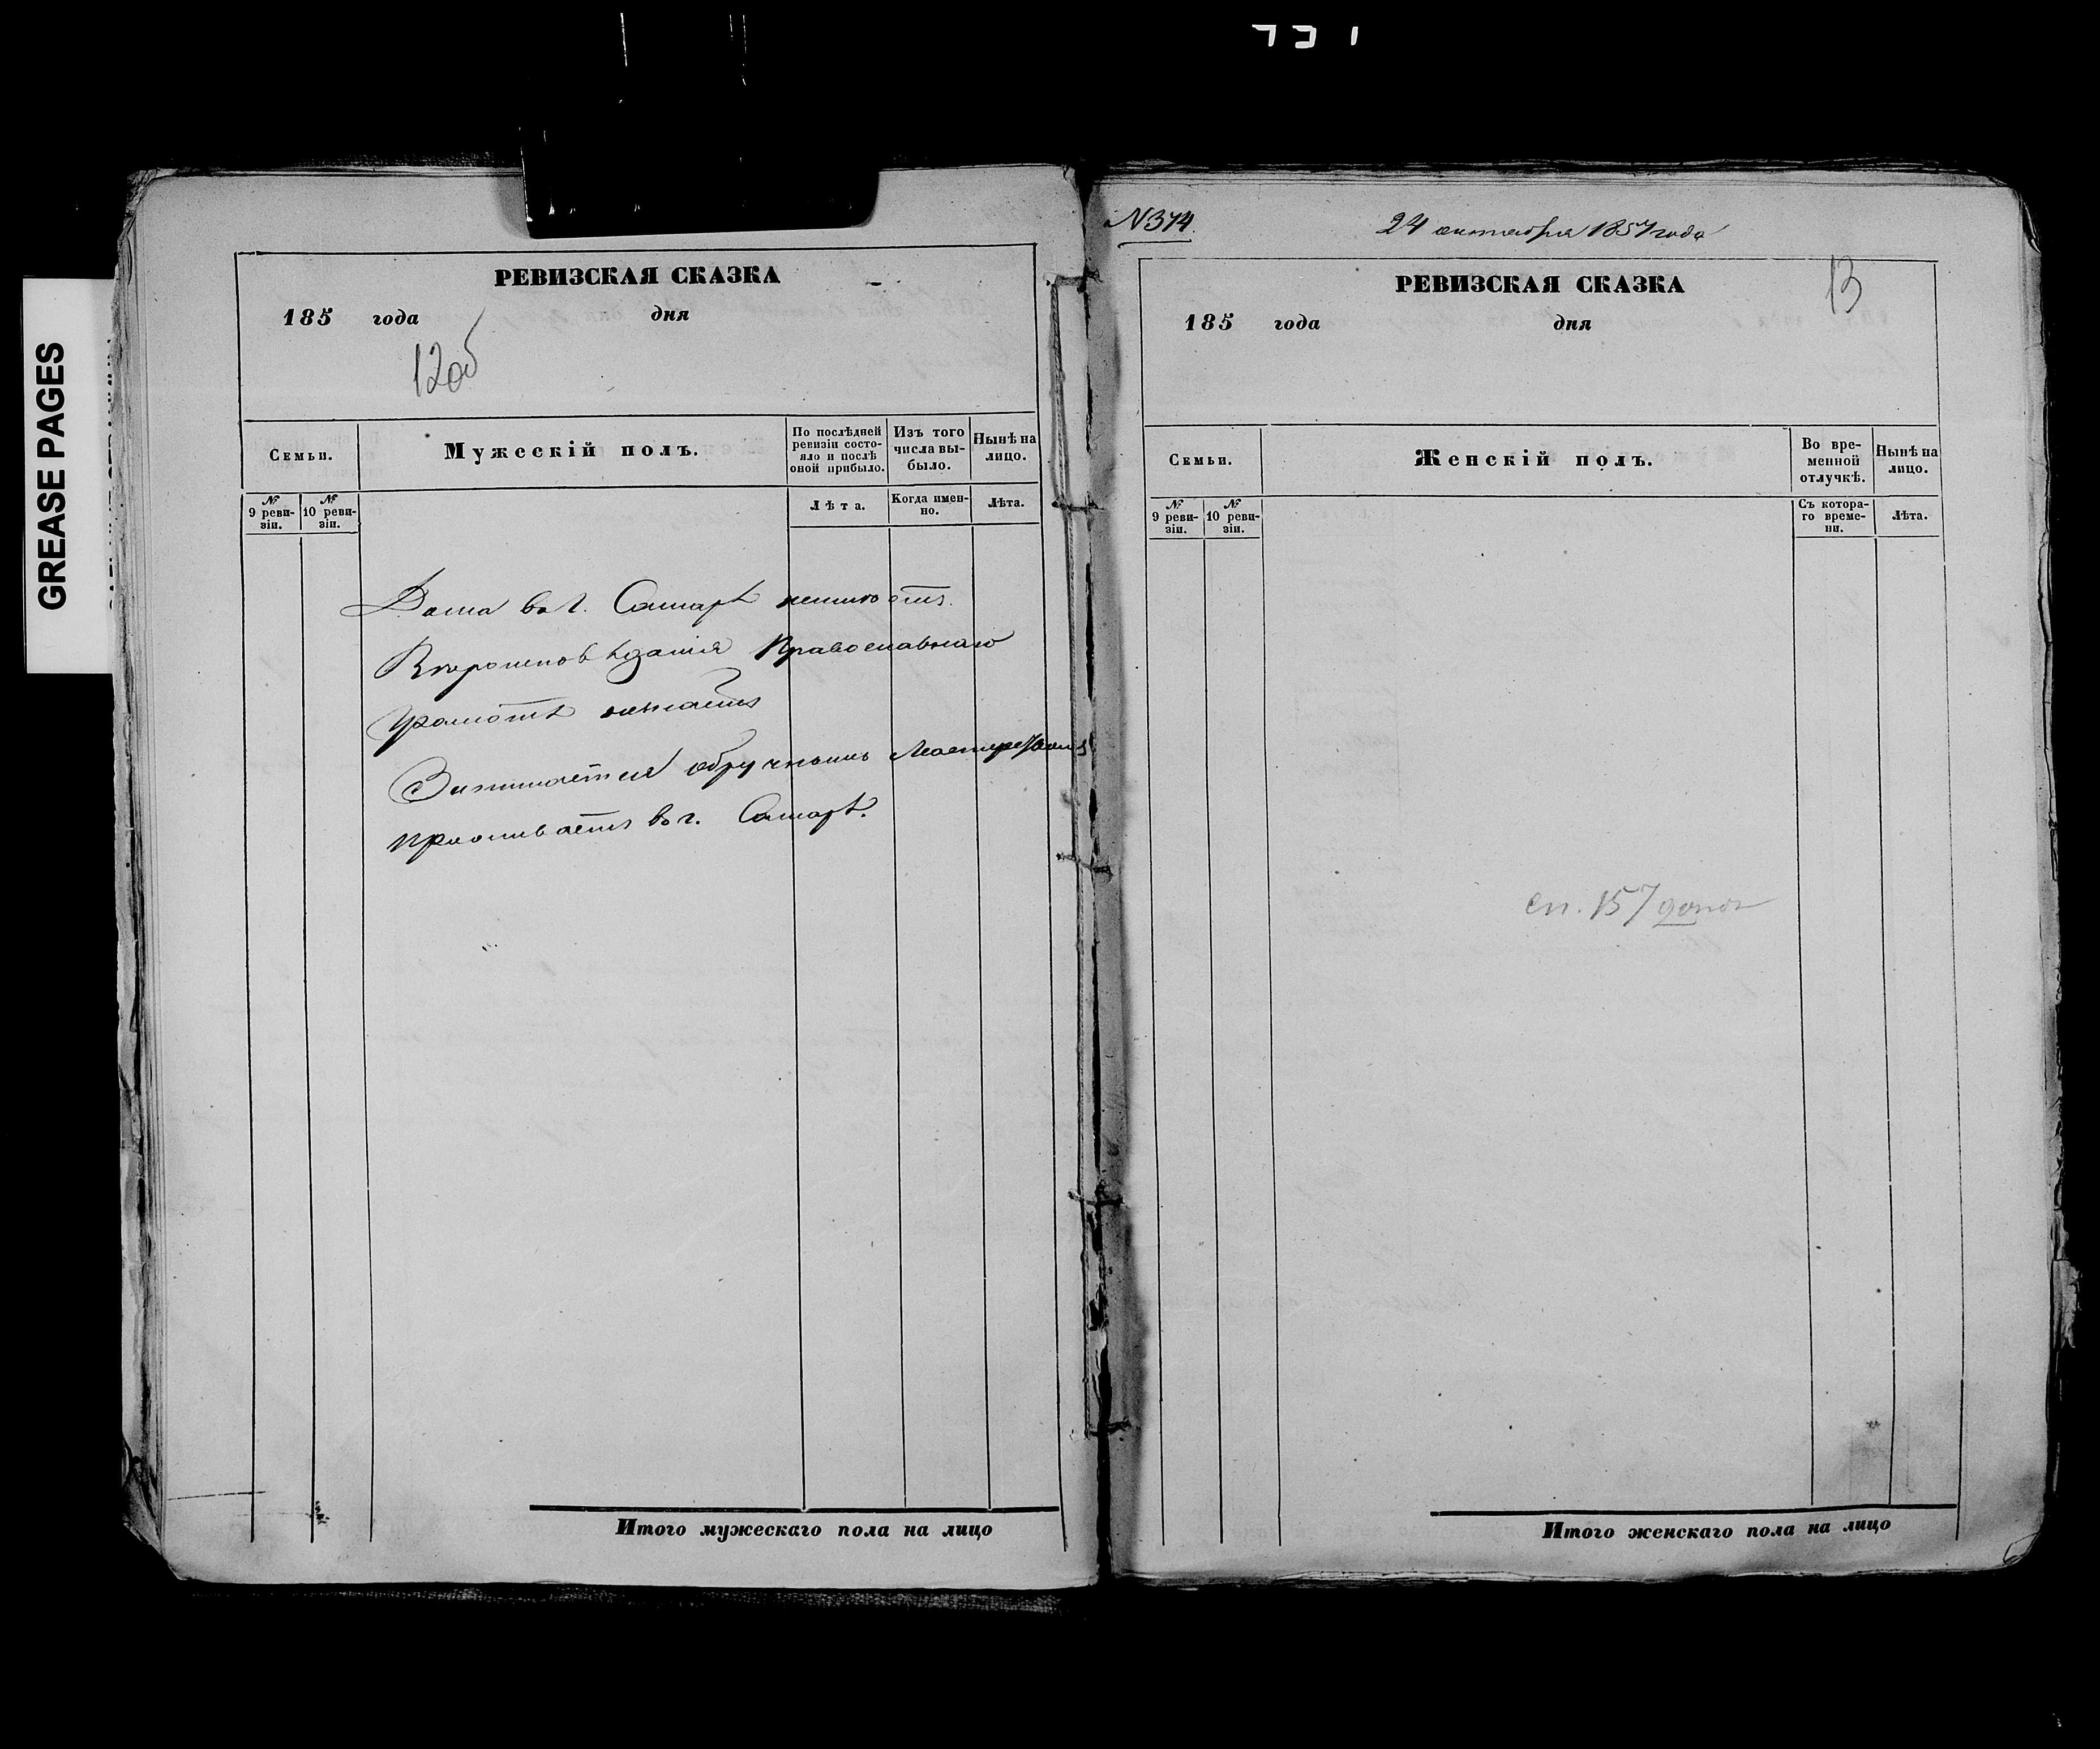 GREASE PAGES
РЕВИЗСКАЯ СКАЗКА
185 года дня
12об
Семьи.
Мужескій полъ.
По послѣдней ревизіи состояло и послѣ оной прибыло.
Изъ того числа выбыло.
Нынѣ на лицо.
№ 9 ревизіи.
№ 10 ревизіи.
Лѣта.
Когда именно.
Лѣта.
Дома въ г. Самарѣ неимѣетъ.
Вѣроисповѣданія Православнаго
Грамотѣ незнаетъ
Занимается обручнымъ Мастерствомъ
проживаетъ въ г. Самарѣ.
Итого мужескаго пола на лицо
№374.
24 октября 1857 года
13
РЕВИЗСКАЯ СКАЗКА
185 года дня
Семьи.
Женскій полъ.
Во временной отлучкѣ.
Нынѣ на лицо.
№ 9 ревизіи.
№ 10 ревизіи.
Съ котораго времени.
Лѣта.
сп. 157
Итого женскаго пола на лицо